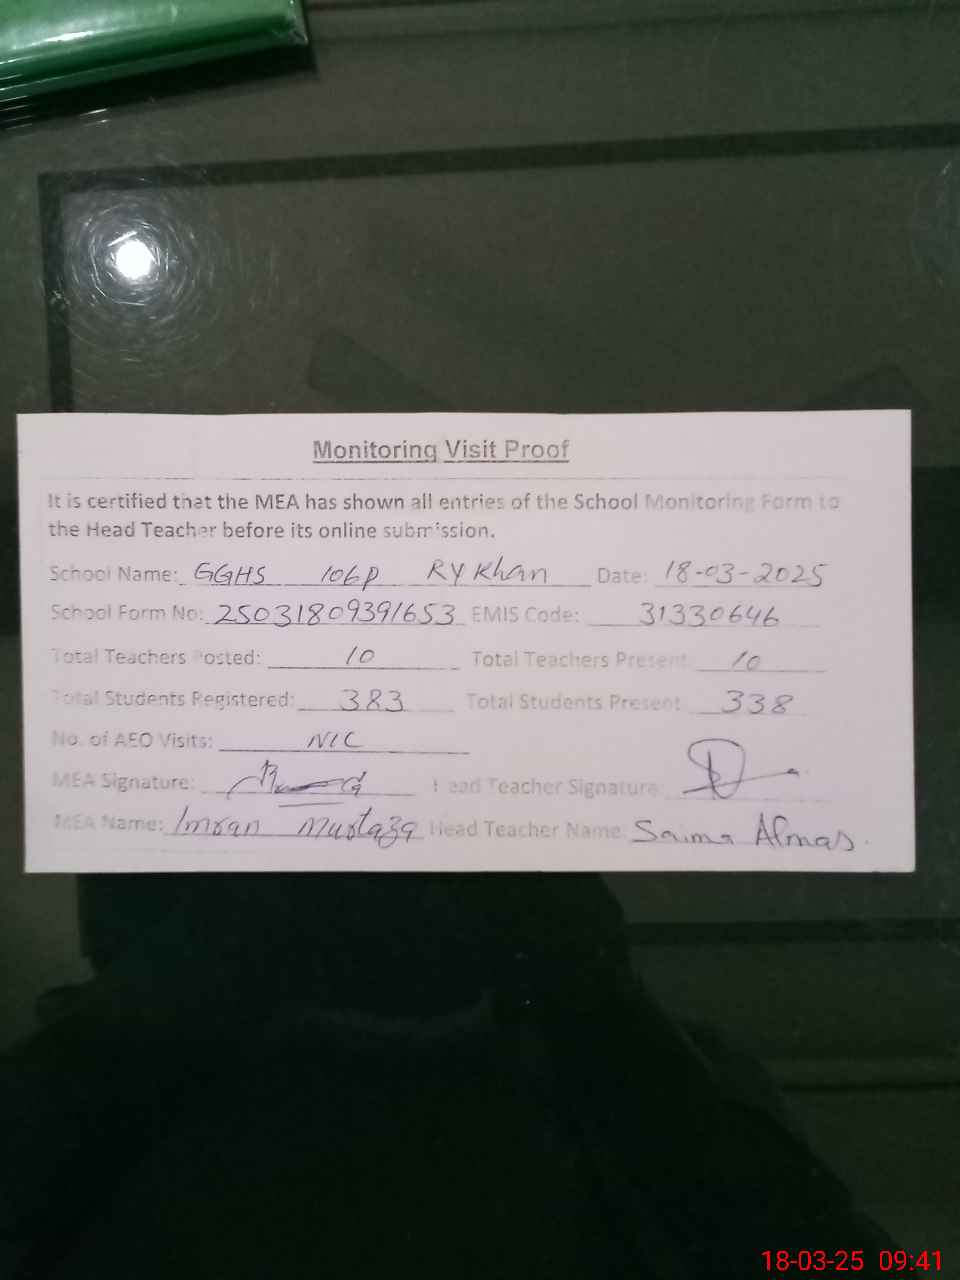 Monitoring Visit Proof
It is certified that the MEA has shown all entries of the School Monitoring Form to
the Head Teacher before its online submission.
School Name: GGHS 106P RY Khan Date: 18-03-2025
School Form No: 25031809391653 EMIS Code: 31330646
Total Teachers Posted: 10 Total Teachers Present: 10
Total Students Registered: 383 Total Students Present: 338
No. of AEO Visits: NIC
MEA Signature: Head Teacher Signature:
MEA Name: Imran Murtaza Head Teacher Name: Saima Almas.
18-03-25 09:41